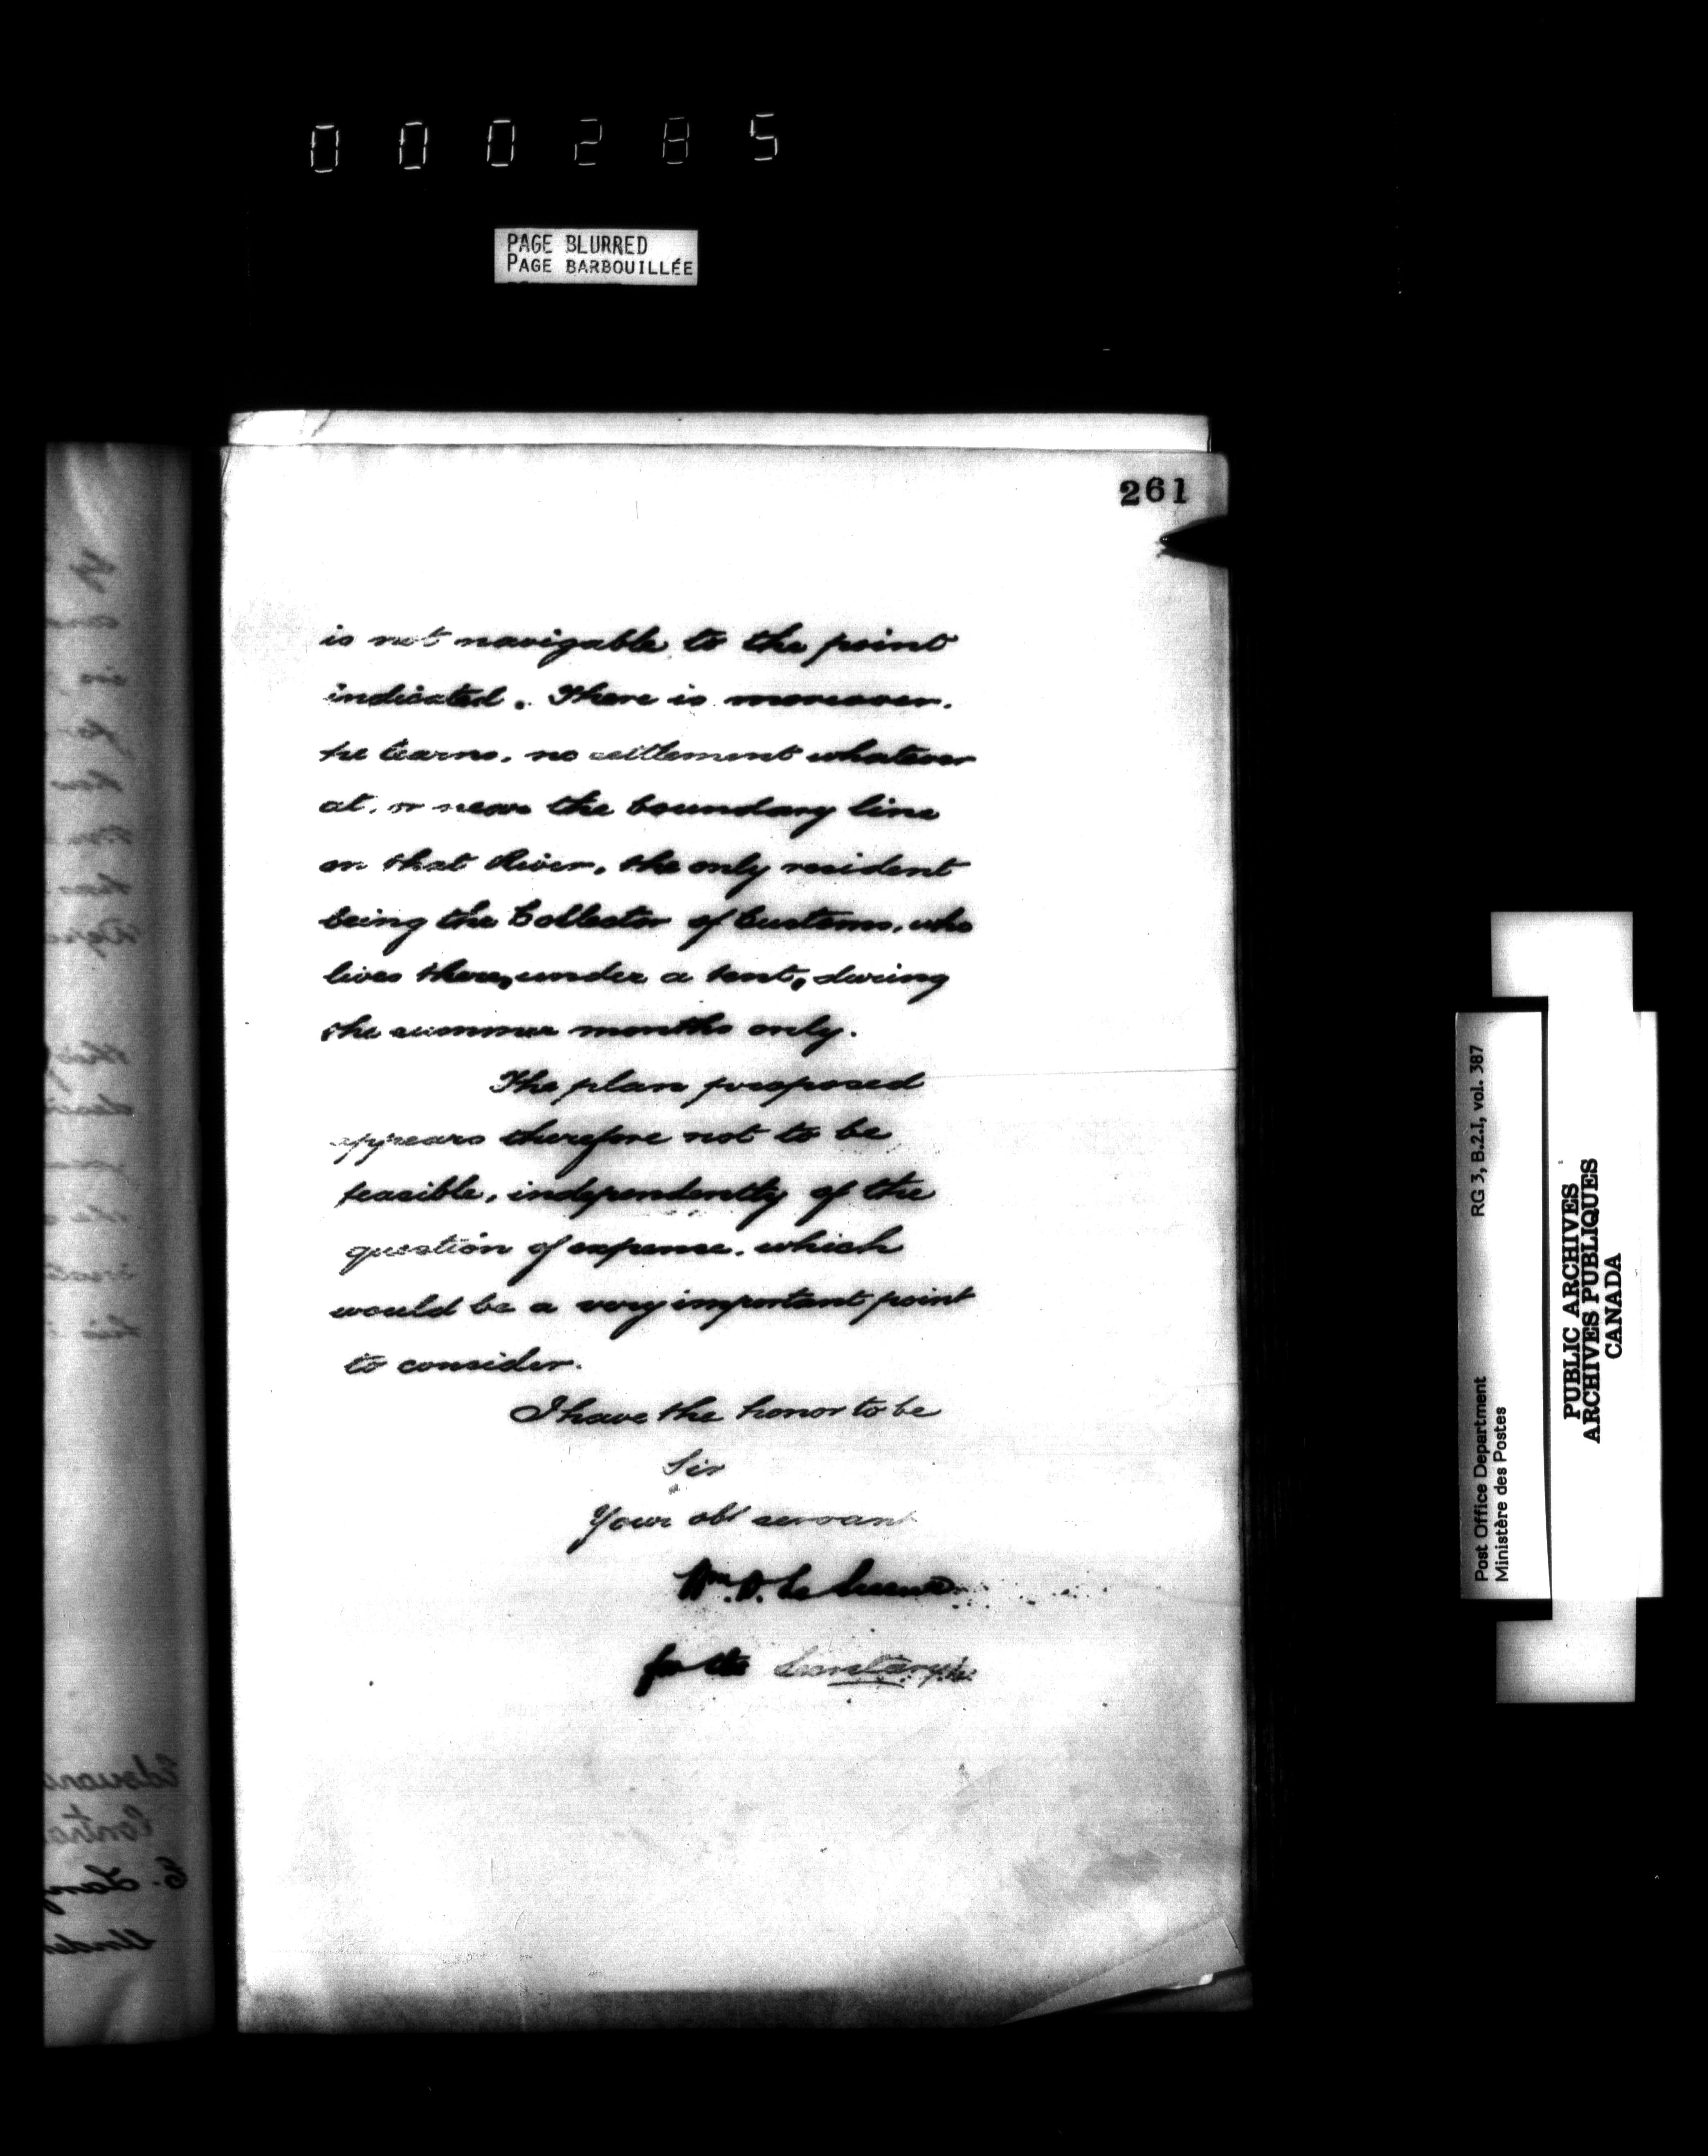 000285
PAGE BLURRED
PAGE BARBOUILLÉE
261
is not navigable to the point
indicated. There is moreover,
he learns, no settlement whatever
at, or near the boundary line
on that River, the only resident
being the Collector of Customs, who
lives there, under a tent, during
the summer months only.
The plan proposed
appears therefore not to be
feasible, independently of the
question of expense, which
would be a very important point
to consider.
I have the honor to be
Sir
Your obt servant
Wm. D. Le Sueur
for the Secretary
RG 3, B.2.I, vol. 387
Post Office Department
Ministère des Postes
PUBLIC ARCHIVES
ARCHIVES PUBLIQUES
CANADA